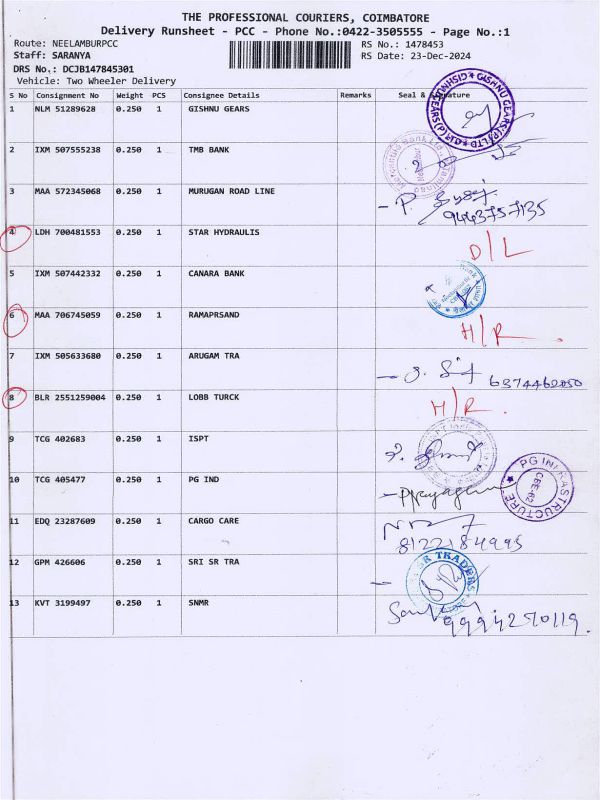 THE PROFESSIONAL COURIERS, COIMBATORE
Delivery Runsheet - PCC - Phone No.:0422-3505555 - Page No.:1
Route: NEELAMBURPCC
RS No.: 1478453
Staff: SARANYA
RS Date: 23-Dec-2024
DRS No.: DCJB147845301
Vehicle: Two Wheeler Delivery
S No Consignment No Weight PCS Consignee Details Remarks Seal & Signature
1 NLM 51289628 0.250 1 GISHNU GEARS
GISHNU GEARS(P)LTD
2 IXM 507555238 0.250 1 TMB BANK
3 MAA 572345068 0.250 1 MURUGAN ROAD LINE
9443757135
4 LDH 700481553 0.250 1 STAR HYDRAULIS
D/L
5 IXM 507442332 0.250 1 CANARA BANK
6 MAA 706745059 0.250 1 RAMAPRSAND
H/R.
7 IXM 505633680 0.250 1 ARUGAM TRA
6374462050
8 BLR 2551259004 0.250 1 LOBB TURCK
H/R.
9 TCG 402683 0.250 1 ISPT
10 TCG 405477 0.250 1 PG IND
PG INFRASTRUCTURE
CBE-62
11 EDQ 23287609 0.250 1 CARGO CARE
8122184995
12 GPM 426606 0.250 1 SRI SR TRA
SR TRADERS
13 KVT 3199497 0.250 1 SNMR
9994270119.